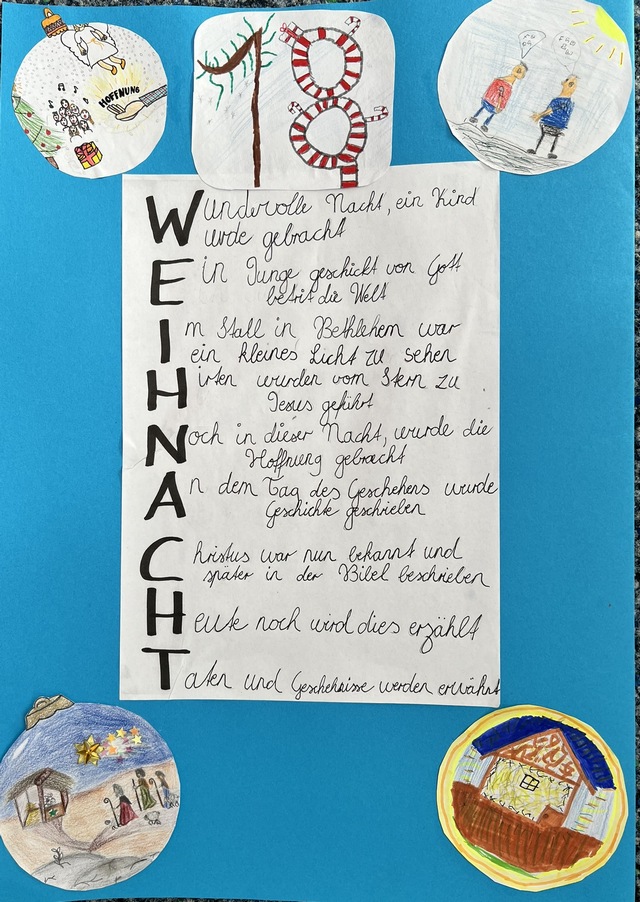 HOFFNUNG
18
Wundervolle Nacht, ein Kind
wurde gebracht
Ein Junge geschickt von Gott
betrit die Welt
Im Stall in Bethlehem war
ein kleines Licht zu sehen
Hirten wurden vom Stern zu
Jesus geführt
Noch in dieser Nacht, wurde die
Hoffnung gebracht
An dem Tag des Geschehens wurde
Geschichte geschrieben
Christus war nun bekannt und
später in der Bibel beschrieben
Heute noch wird dies erzählt
Taten und Geschehnisse werden erwähnt